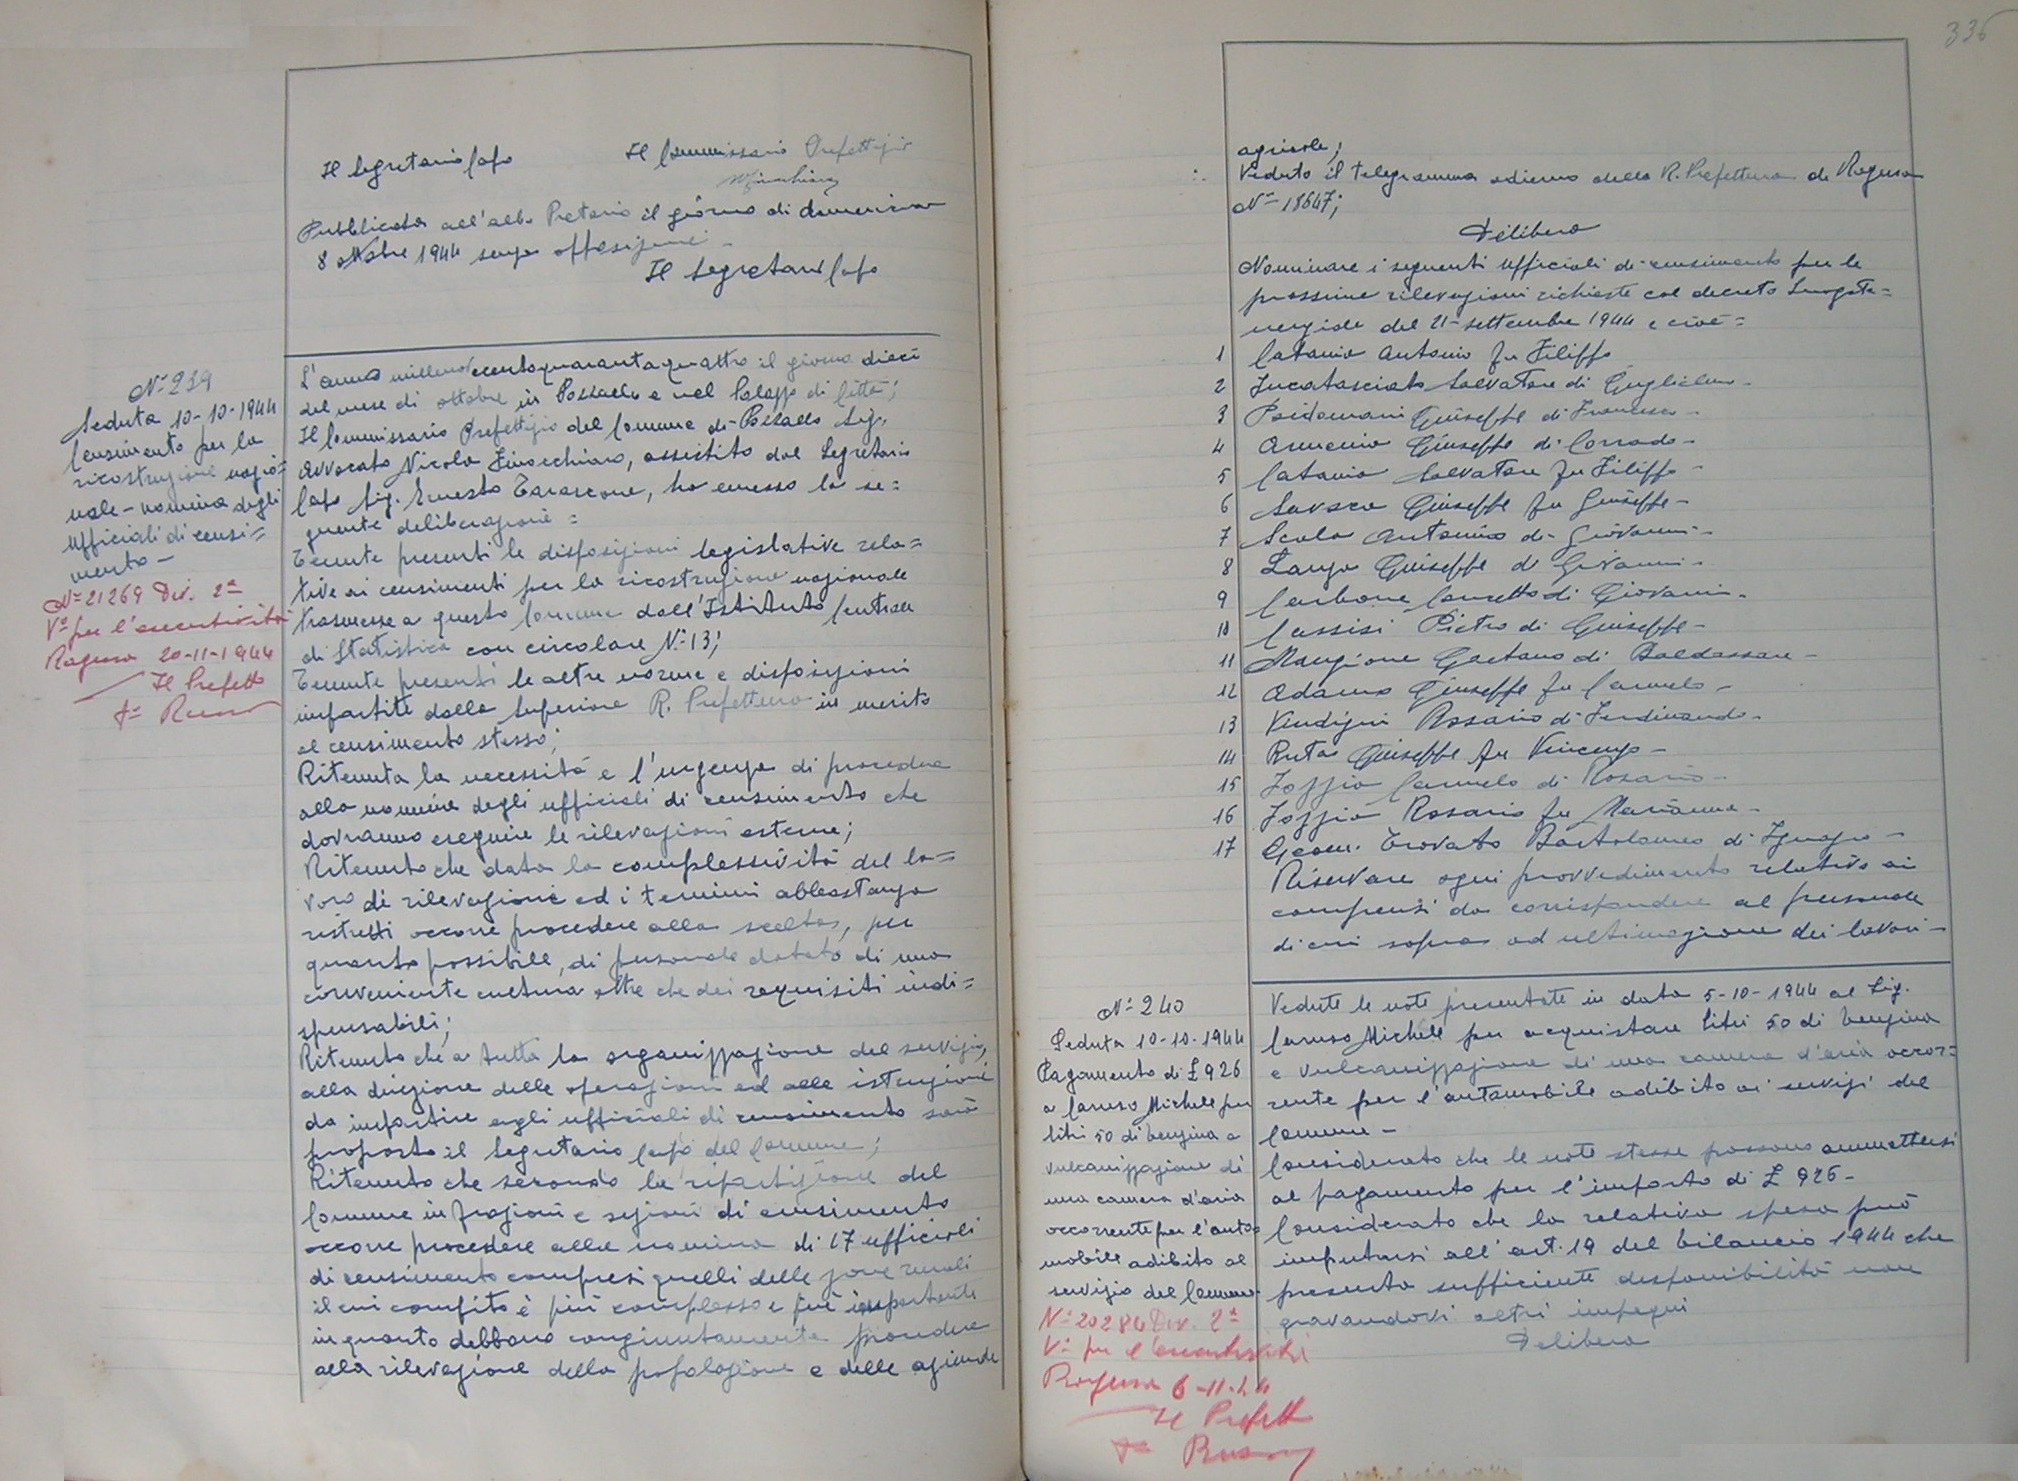 Il Segretario Capo
Il Commissario Prefettizio
Pubblicata all'albo Pretorio il giorno di domenica
8 ottobre 1944 senza opposizioni -
Il Segretario Capo
N° 239
Seduta 10-10-1944
Censimento per la
ricostruzione nazio=
nale - nomina degli
ufficiali di censi=
mento -
N° 21269 Div. 2ª
V° per l'esecutività
Ragusa 20-11-1944
Il Prefetto
L'anno millenovecentoquarantaquattro il giorno dieci
del mese di ottobre in Pozzallo e nel Palazzo di Città;
Il Commissario Prefettizio del Comune di Pozzallo Sig.
Avvocato Nicola Finocchiaro, assistito dal Segretario
Capo Sig. Ernesto Tarascone, ha emesso la se=
guente deliberazione =
Tenute presenti le disposizioni legislative rela=
tive ai censimenti per la ricostruzione nazionale
trasmesse a questo Comune dall'Istituto Centrale
di Statistica con circolare N° 13;
Tenute presenti le altre norme e disposizioni
impartite dalla Superiore R. Prefettura in merito
al censimento stesso;
Ritenuta la necessità e l'urgenza di procedere
alla nomina degli ufficiali di censimento che
dovranno eseguire le rilevazioni esterne;
Ritenuto che data la complessività del la=
voro di rilevazione ed i termini abbastanza
ristretti occorre procedere alla scelta, per
quanto possibile, di personale dotato di una
conveniente cultura oltre che dei requisiti indi=
spensabili;
Ritenuto che a tutta la organizzazione del servizio,
alla direzione delle operazioni ed alle istruzioni
da impartire agli ufficiali di censimento sarà
proposto il Segretario Capo del Comune;
Ritenuto che secondo la ripartizione del
Comune in frazioni e sezioni di censimento
occorre procedere alla nomina di 17 ufficiali
di censimento compresi quelli delle zone rurali
il cui compito è più complesso e più importante
in quanto debbano congiuntamente procedere
alla rilevazione della popolazione e delle aziende
336
agricole;
Veduto il telegramma odierno della R. Prefettura di Ragusa
N° 18647;
Delibera
Nominare i seguenti ufficiali di censimento per le
prossime rilevazioni richieste col decreto Luogote=
nenziale del 21 settembre 1944 e cioè =
1 Catania Antonio fu Filippo
2 Iucatasciato Salvatore di Guglielmo -
3 Psidomani Giuseppe di Francesco -
4 Armenia Giuseppe di Corrado -
5 Catania Salvatore fu Filippo -
6 Giuseppe fu Giuseppe -
7 Scala Antonino di Giovanni -
8 Giuseppe di Giovanni -
9 Carbone di Giovanni -
10 Cassisi Pietro di Giuseppe -
11 Mangione Gaetano di Baldassare -
12 Adamo Giuseppe fu Carmelo -
13 Vindigni Rosario di Ferdinando -
14 Ruta Giuseppe fu Vincenzo -
15 Carmelo di Rosario -
16 Rosario fu
17 Geom. Trovato Bartolomeo di Ignazio -
Riservare ogni provvedimento relativo ai
compensi da corrispondere al personale
di cui sopra ad ultimazione dei lavori -
N° 240
Seduta 10-10-1944
Pagamento di £ 926
a Caruso Michele per
litri 50 di benzina e
vulcanizzazione di
una camera d'aria
occorrente per l'auto
mobile adibito al
servizio del Comune
N° 20284 Div. 2ª
V° per l'esecutività
Ragusa 6-11-44
Il Prefetto
Vedute le note presentate in data 5-10-1944 al Sig.
Caruso Michele per acquistare litri 50 di benzina
e vulcanizzazione di una camera d'aria occor=
rente per l'automobile adibito ai servizi del
Comune -
Considerato che le note stesse possono ammettersi
al pagamento per l'importo di £ 926 -
Considerato che la relativa spesa può
imputarsi all'art. 19 del bilancio 1944 che
presenta sufficiente disponibilità non
gravandovi altri impegni
Delibera